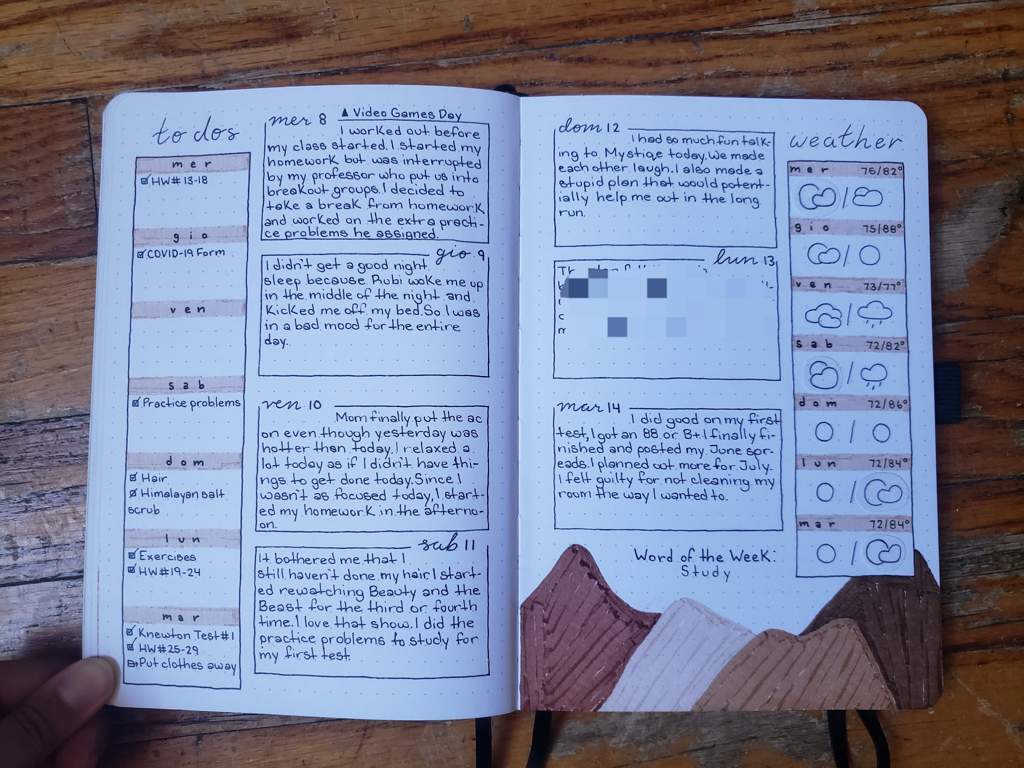 to dos
mer
HW#13-18
gio
COVID-19 Form
ven
sab
Practice problems
dom
Hair
Himalayan salt
scrub
lun
Exercises
HW#19-24
mar
Knewton Test#1
HW#25-29
Put clothes away
mer 8 ▲ Video Games Day
I worked out before
my class started. I started my
homework but was interrupted
by my professor who put us into
breakout groups. I decided to
take a break from homework
and worked on the extra practi-
ce problems he assigned.
gio 9
I didn't get a good night
sleep because Rubi woke me up
in the middle of the night and
kicked me off my bed. So I was
in a bad mood for the entire
day.
ven 10
Mom finally put the ac
on even though yesterday was
hotter than today. I relaxed a
lot today as if I didn't have thi-
ngs to get done today. Since I
wasn't as focused today, I start-
ed my homework in the afterno-
on.
sab 11
It bothered me that I
still haven't done my hair. I start-
ed rewatching Beauty and the
Beast for the third or fourth
time. I love that show. I did the
practice problems to study for
my first test.
dom 12
I had so much fun talk-
ing to Mystiqe today. We made
each other laugh. I also made a
stupid plan that would potent-
ially help me out in the long
run.
lun 13
mar 14
I did good on my first
test, I got an 88 or B+. I finally fi-
nished and posted my June spr-
eads. I planned out more for July.
I felt guilty for not cleaning my
room the way I wanted to.
Word of the Week:
Study
weather
mer 75/82°
gio 75/88°
ven 73/77°
sab 72/82°
dom 72/86°
lun 72/84°
mar 72/84°